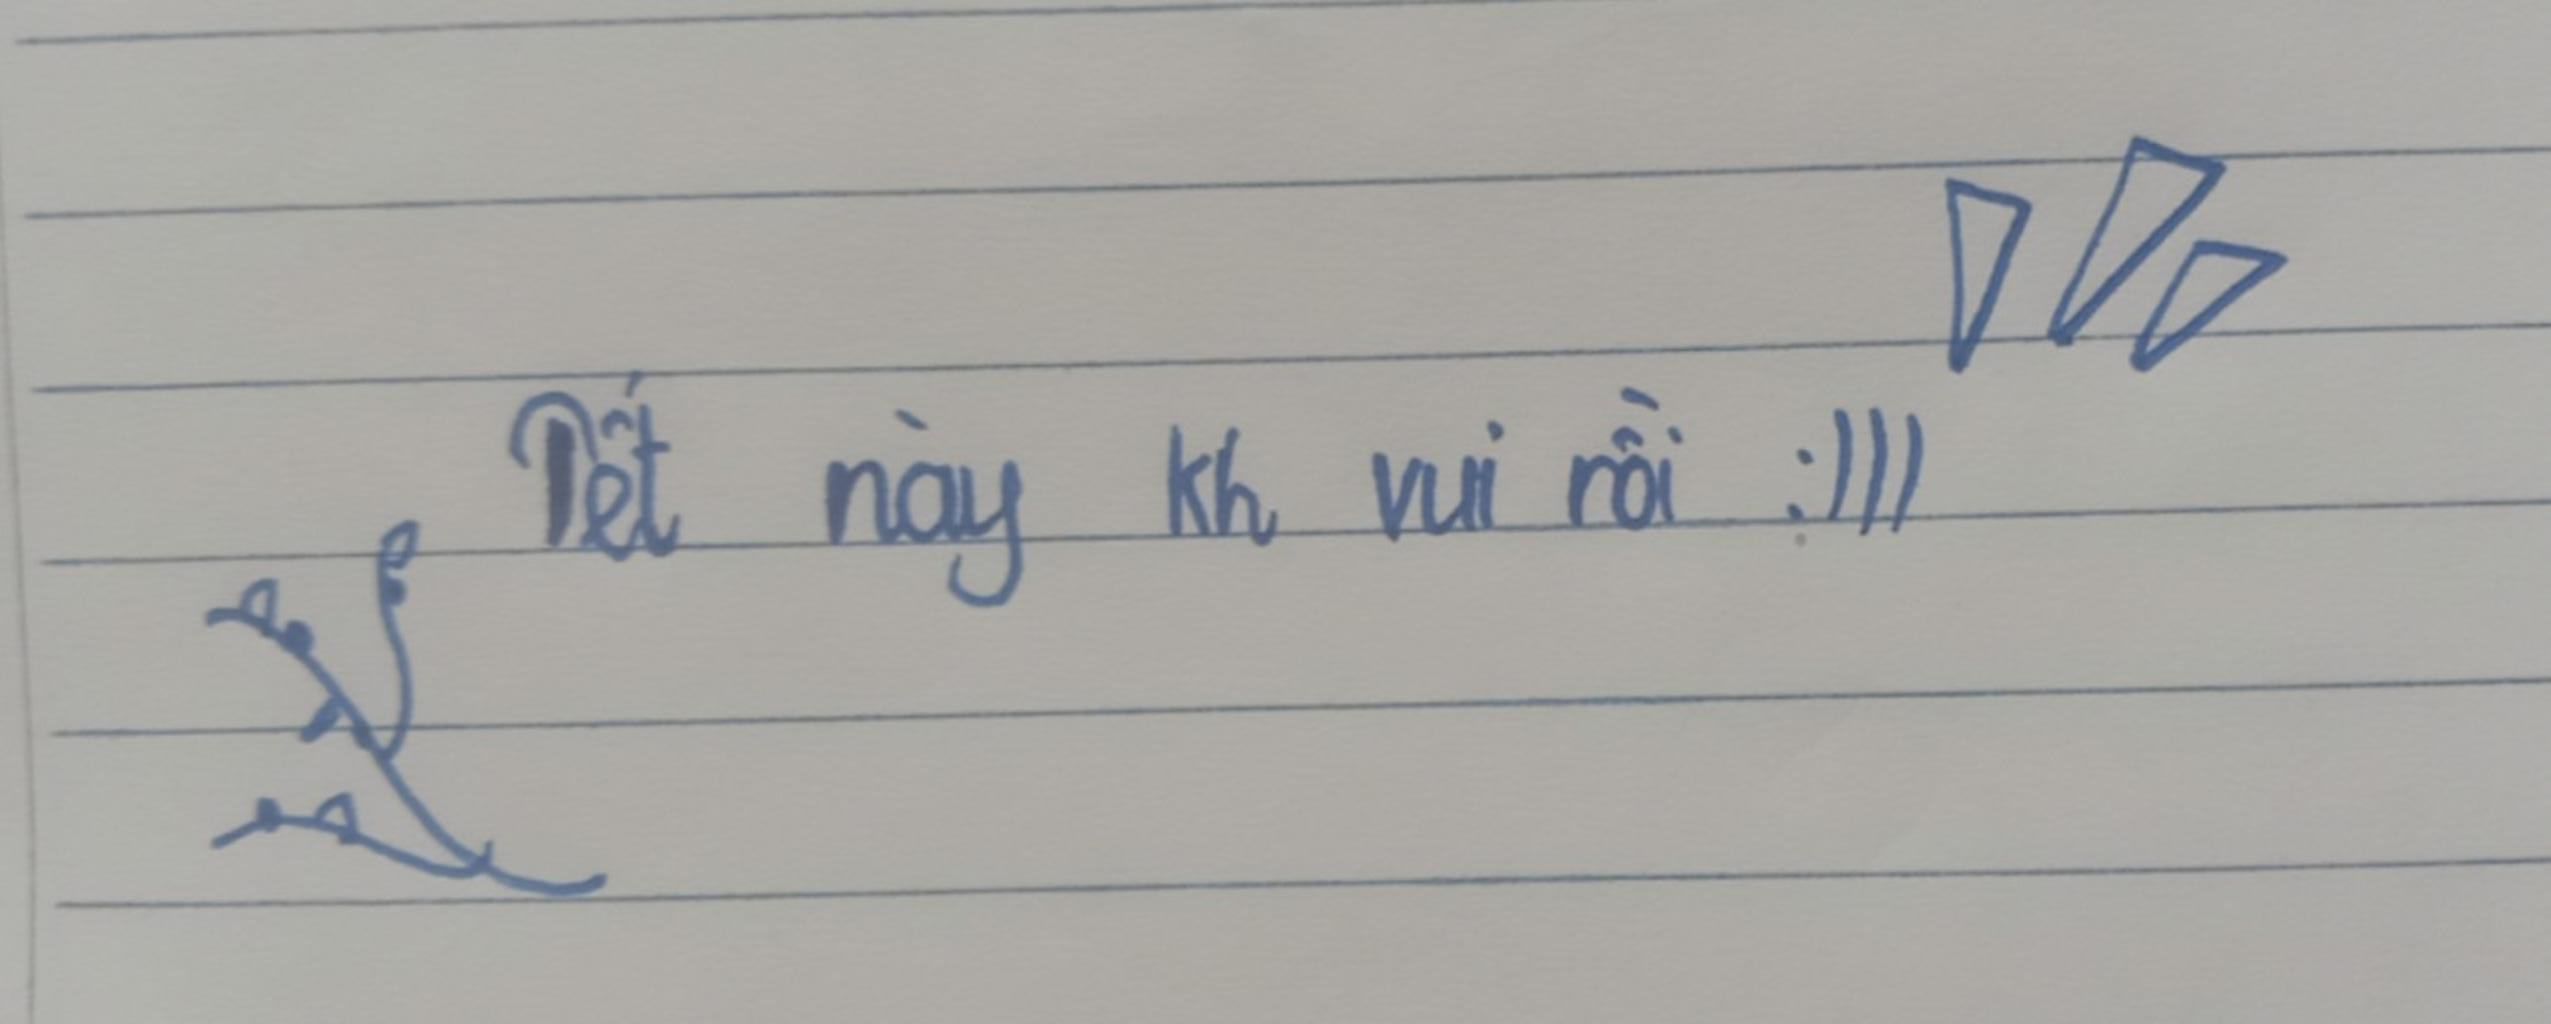 Tết này kh vui rồi :)))